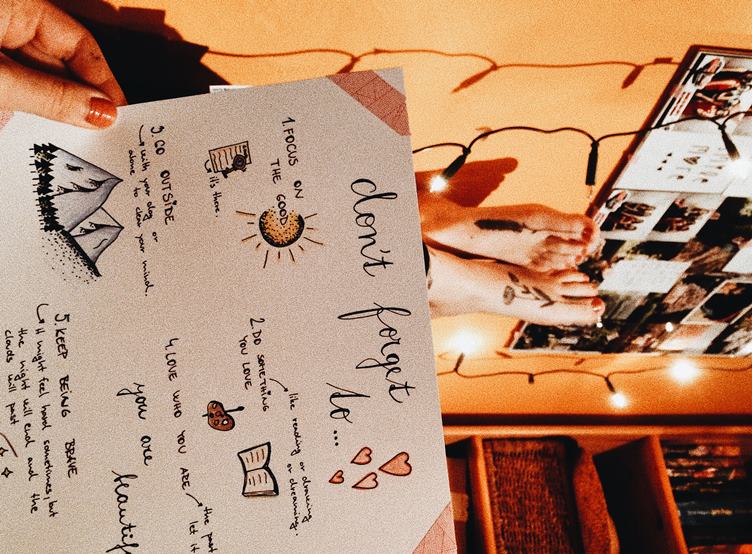 don't forget
to...
1. FOCUS ON
THE GOOD
it's there.
2. DO SOMETHING
YOU LOVE
like reading or drawing
or dreaming.
3. GO OUTSIDE
with your dog or
alone to clear your mind.
4. LOVE WHO YOU ARE
the past
let it
you are
beautif
5. KEEP BEING BRAVE
it might feel hard sometimes, but
the night will end and the
clouds will past